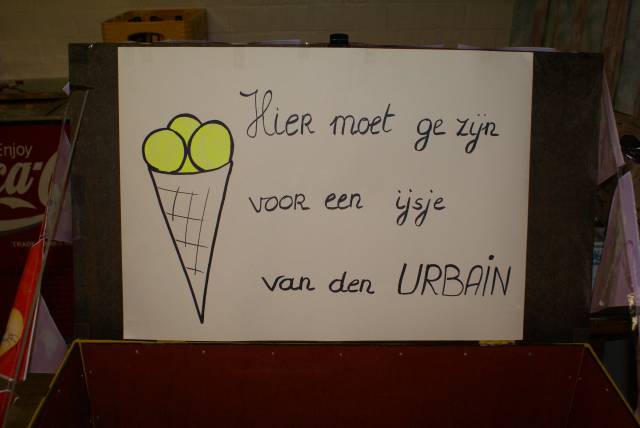 Hier moet ge zijn
voor een ijsje
van den URBAIN
Enjoy